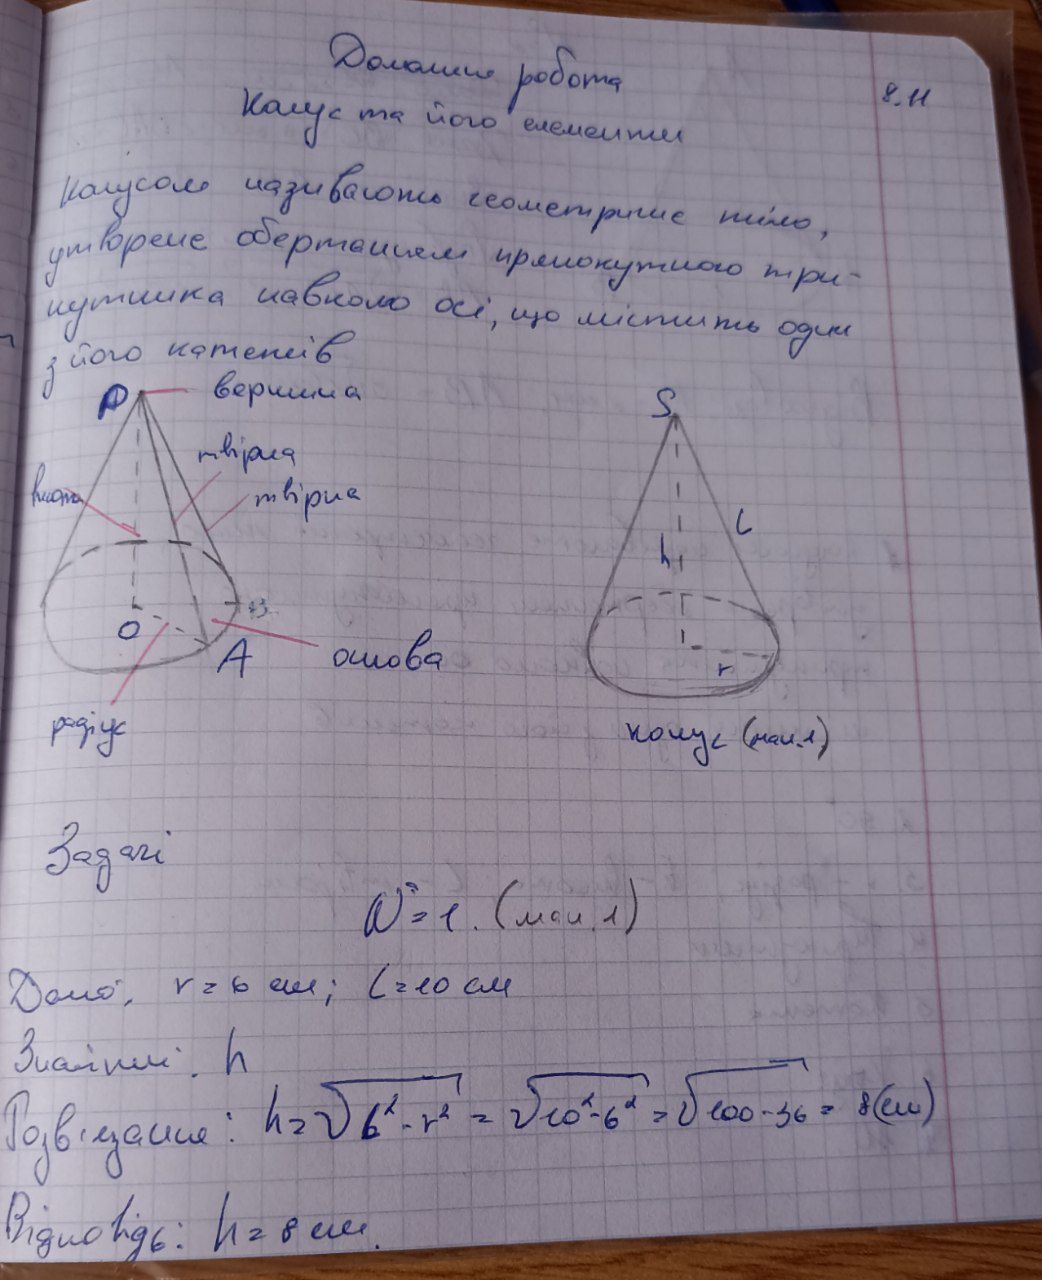 Домашнє робота
8.11
Конус та його елементи
Конусом називають геометричне тіло,
утворене обертанням прямокутного три-
кутника навколо осі, що містить один
з його катетів
P вершина
твірна
твірна
висота
O
A
основа
радіус
S
L
h
r
конус (мал.1)
Задачі
№1. (мал.1)
Дано: r = 6 см; L = 10 см
Знайти: h
Розв'язання: h = √6² - r² = √10² - 6² = √100 - 36 = 8(см)
Відповідь: h = 8 см.